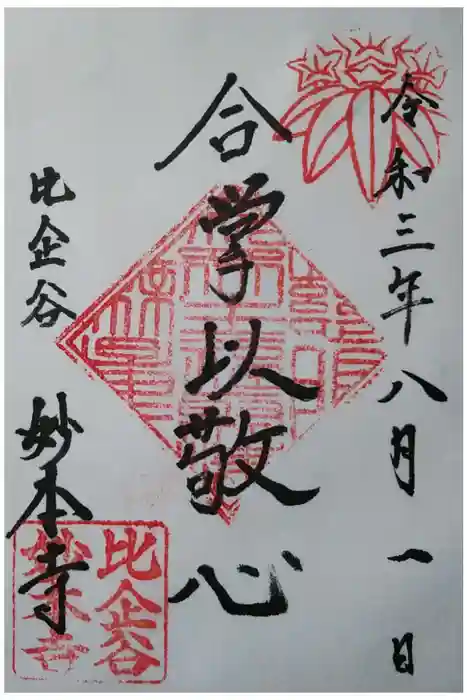 令和三年八月一日
合掌以敬心
比企谷
妙本寺
比企谷
妙本寺